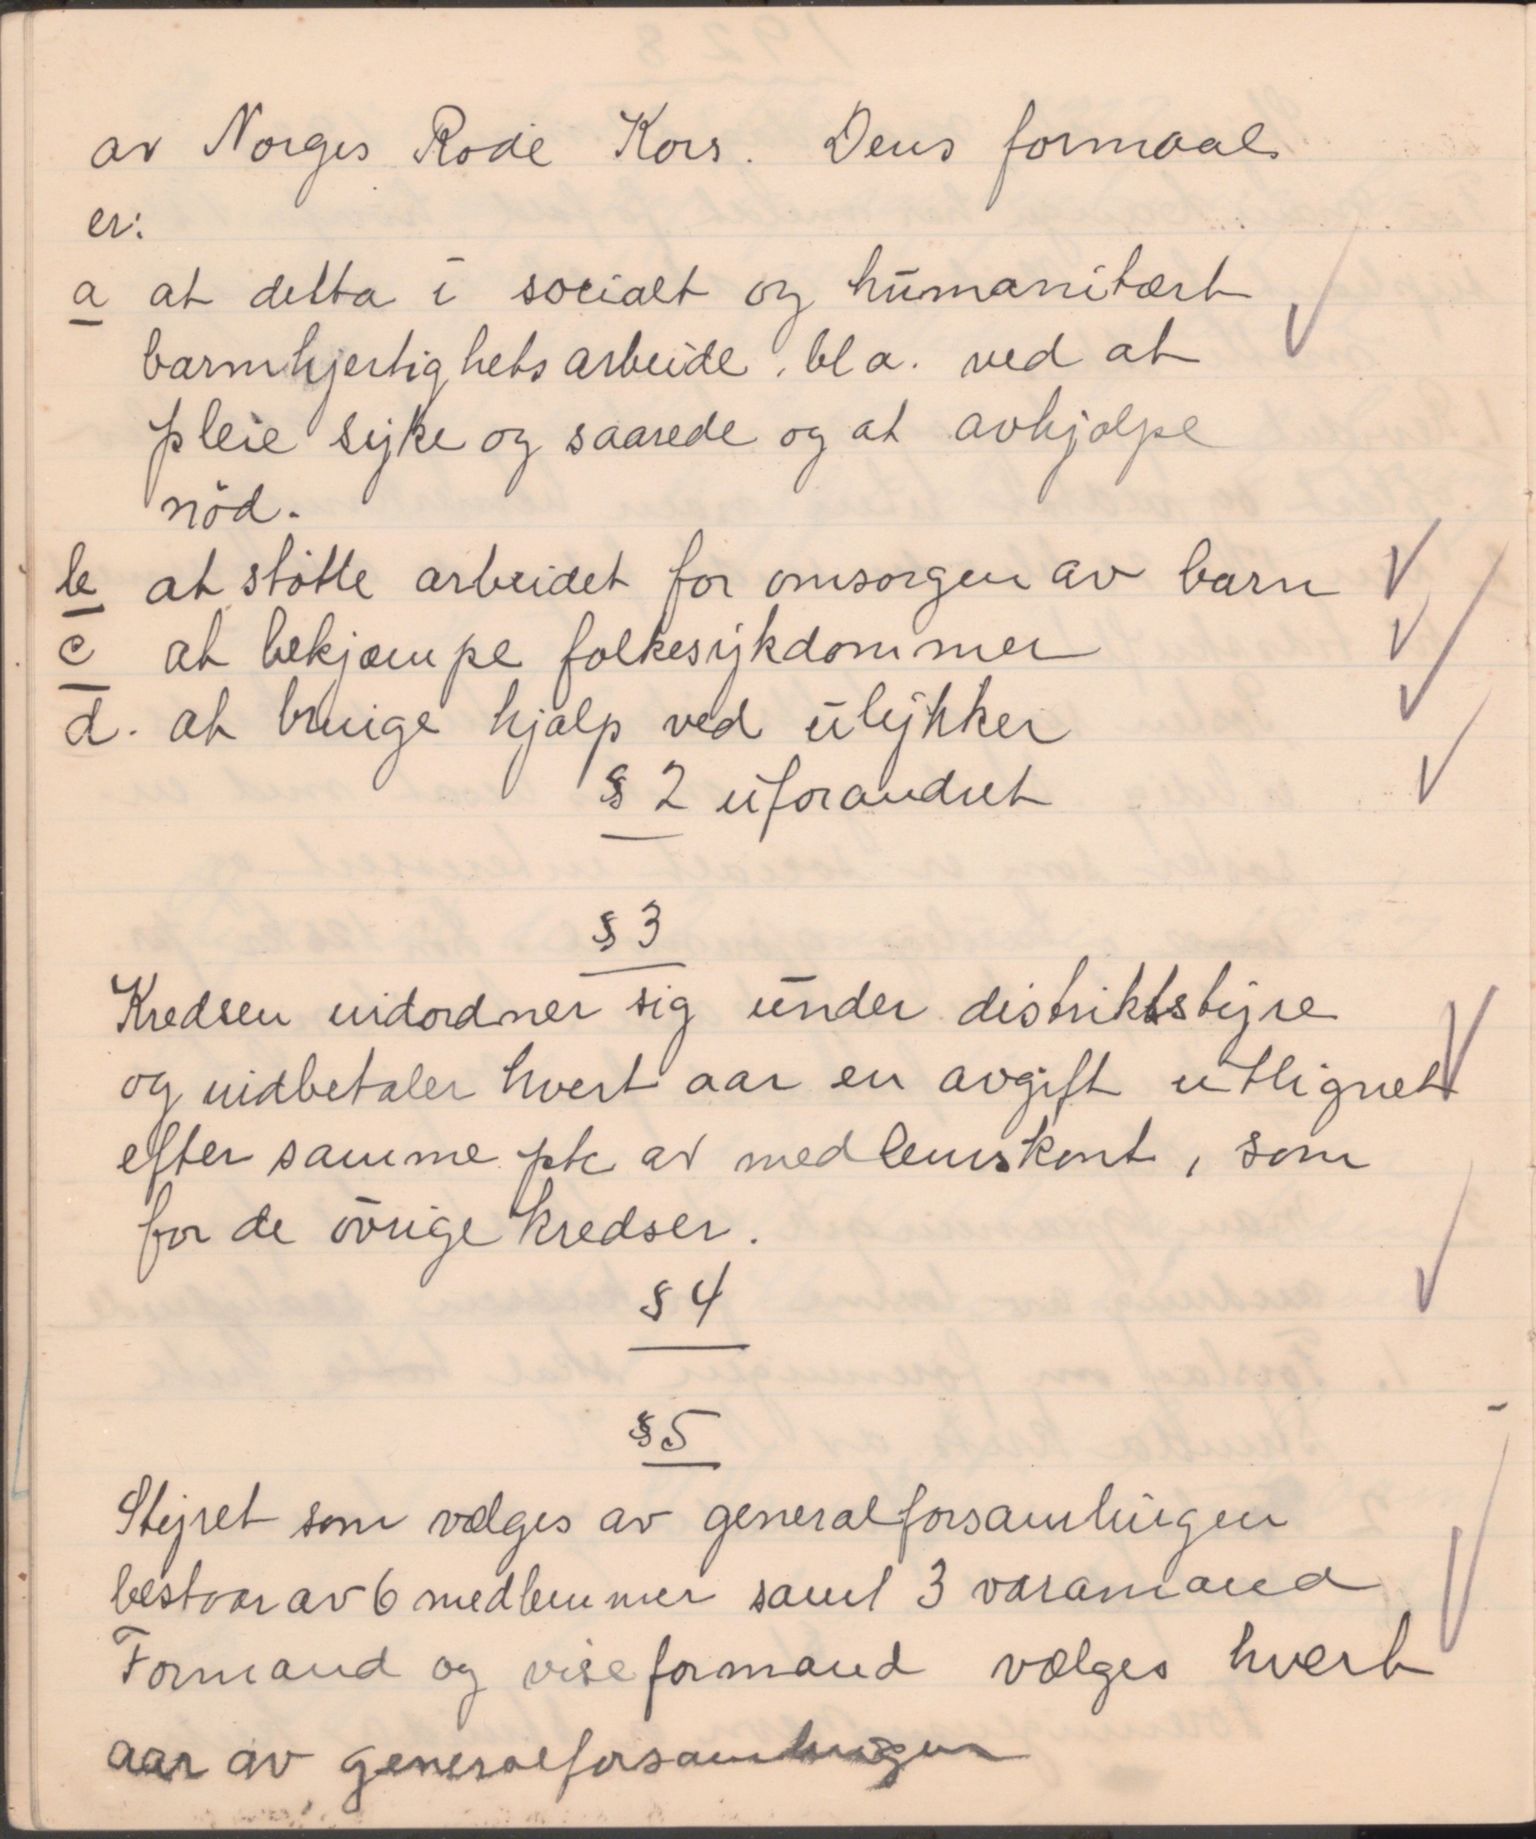 av Norges Røde Kors. Dens formaal
er:
a at delta i socialt og humanitært
barmhjertighetsarbeide, bl a. ved at
pleie syke og saarede og at avhjælpe
nöd.
b at stötte arbeidet for omsorgen av barn
c at bekjæmpe folkesykdommer
d. at bringe hjælp ved ulykker
§ 2 uforandret
§ 3
Kredsen indordner sig under distriktsstyre
og indbetaler hvert aar en avgift utlignet
efter samme pct av medlemskont, som
for de övrige kredser.
§ 4
§ 5
Styret som vælges av generalforsamlingen
bestaar av 6 medlemmer samt 3 varamænd
Formand og viseformand vælges hvert
aar av generalforsamlingen